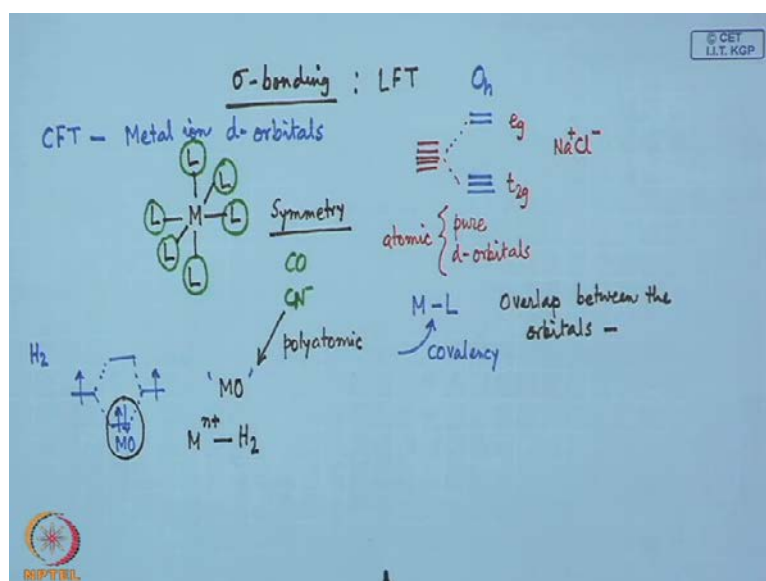 © CET
I.I.T. KGP
σ-bonding : LFT
Oh
CFT — Metal ion d-orbitals
eg
Na⁺Cl⁻
t2g
L
L
L
L
M
L
L
L
Symmetry
atomic { pure
d-orbitals
CO
CN⁻
M-L
Overlap between the
orbitals —
polyatomic
covalency
H2
'MO'
MO
Mⁿ⁺ — H2
NPTEL